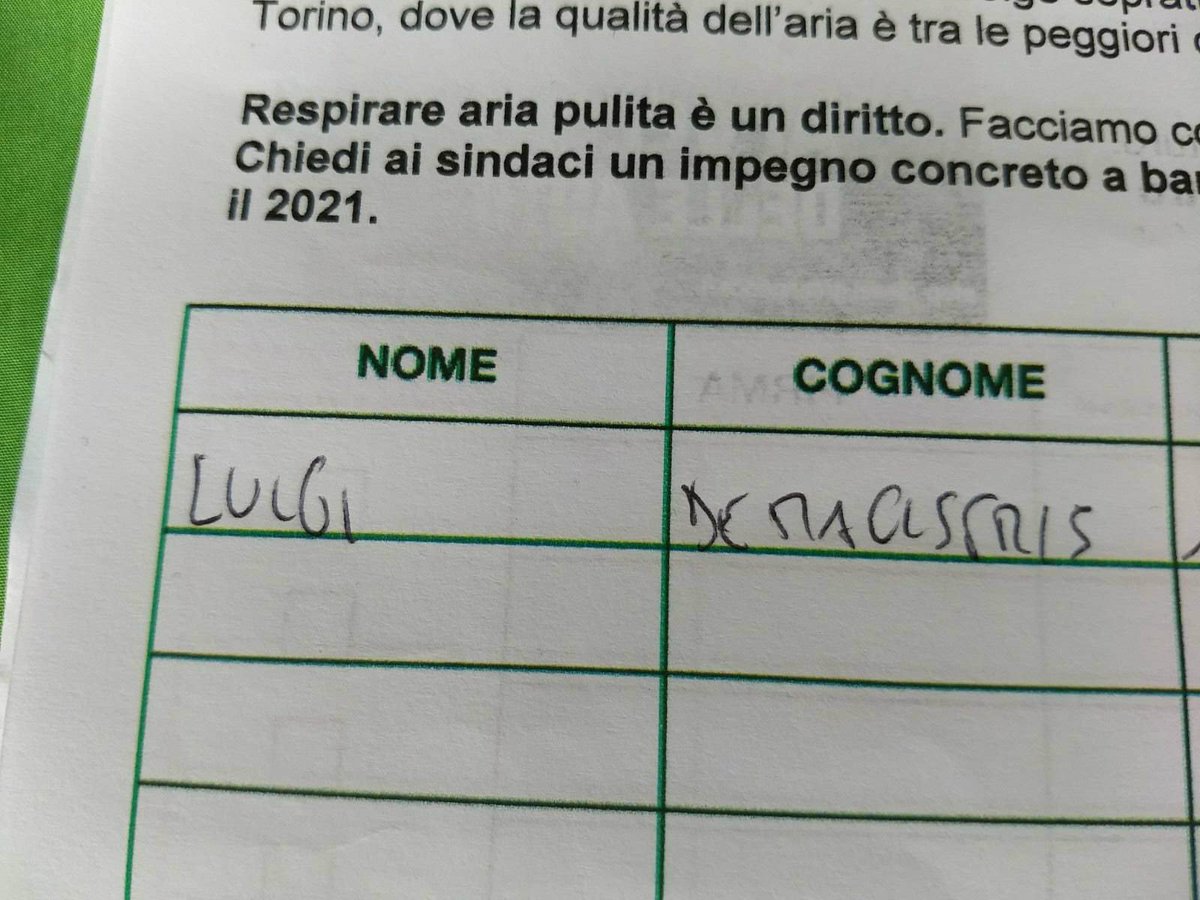 Torino, dove la qualità dell'aria è tra le peggiori
Respirare aria pulita è un diritto. Facciamo
Chiedi ai sindaci un impegno concreto a
il 2021.
NOME COGNOME
LUIGI DE MAGISTRIS